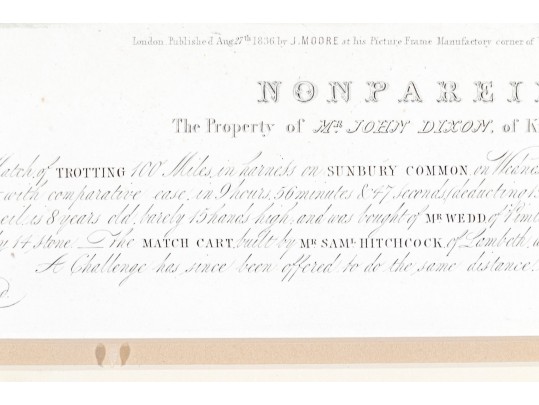 London, Published Aug 27th 1836 by J. MOORE at his Picture Frame Manufactory corner of
NONPAREI
The Property of MR. JOHN DIXON, of K
Match, of TROTTING 100 Miles, in harness on SUNBURY COMMON, on Wednes
with comparative ease, in 9 hours, 56 minutes & 47 seconds, (deducting 15
eil, is 8 years old, barely 15 hands high, and was bought of MR. WEDD, of Piml
by 14 stone. The MATCH CART, built by MR. SAML. HITCHCOCK, of Lambeth,
A Challenge has since been offered to do the same distance
d.